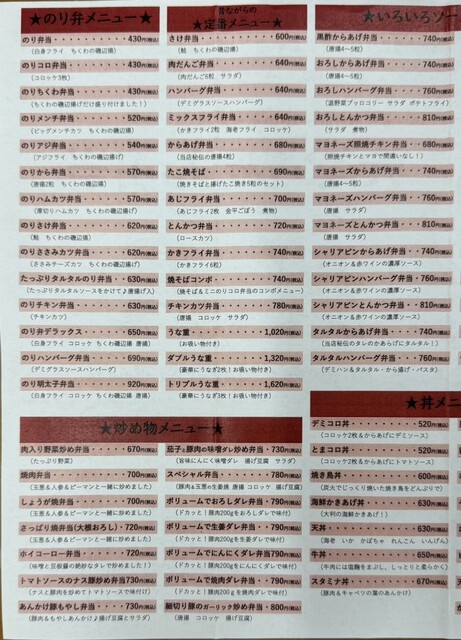 ★のり弁メニュー★
のり弁当・・・・・・・・430円(税込)
(白身フライ ちくわの磯辺揚)
のりコロ弁当・・・・・・430円(税込)
(コロッケ3枚)
のりちくわ弁当・・・・・430円(税込)
(ちくわの磯辺揚げだけ盛り付けました！)
のりメンチ弁当・・・・・520円(税込)
(ビッグメンチカツ ちくわの磯辺揚)
のりアジ弁当・・・・・・540円(税込)
(アジフライ ちくわの磯辺揚げ)
のりから弁当・・・・・・570円(税込)
(唐揚2粒 ちくわの磯辺揚)
のりハムカツ弁当・・・・570円(税込)
(厚切りハムカツ ちくわの磯辺揚)
のりさけ弁当・・・・・・620円(税込)
(鮭 ちくわの磯辺揚)
のりささみカツ弁当・・・620円(税込)
(ささみチーズカツ ちくわの磯辺揚)
たっぷりタルタルのり弁当・630円(税込)
(たっぷりタルタルソースをかけて♪唐揚げ入)
のりチキン弁当・・・・・630円(税込)
(チキンカツ)
のり弁デラックス・・・・650円(税込)
(白身フライ コロッケ ちくわ磯辺揚 唐揚)
のりハンバーグ弁当・・・690円(税込)
(デミグラスソースハンバーグ)
のり明太子弁当・・・・・920円(税込)
(白身フライ コロッケ ちくわ磯辺揚 唐揚)
昔ながらの
★定番メニュー★
さけ弁当・・・・・・・・600円(税込)
(鮭 ちくわの磯辺揚)
肉だんご弁当・・・・・・640円(税込)
(肉だんご6粒 サラダ)
ハンバーグ弁当・・・・・640円(税込)
(デミグラスソースハンバーグ)
ミックスフライ弁当・・・640円(税込)
(かきフライ2粒 海老フライ コロッケ)
からあげ弁当・・・・・・680円(税込)
(当店秘伝の唐揚4粒)
たこ焼そば・・・・・・・690円(税込)
(焼きそばと揚げたこ焼き5粒のセット)
あじフライ弁当・・・・・700円(税込)
(あじフライ2枚 金平ごぼう 煮物)
とんかつ弁当・・・・・・720円(税込)
(ロースカツ)
かきフライ弁当・・・・・740円(税込)
(かきフライ6粒)
焼そばコンボ・・・・・・740円(税込)
(焼そば＆ミニのりコロ弁当のコンボメニュー)
チキンカツ弁当・・・・・780円(税込)
(唐揚 コロッケ サラダ)
うな重・・・・・・・・1,020円(税込)
(お吸い物付き)
ダブルうな重・・・・・1,320円(税込)
(豪華にうなぎ2枚！お吸い物付き)
トリプルうな重・・・・1,620円(税込)
(豪華にうなぎ3枚！お吸い物付き)
★いろいろソー
黒酢からあげ弁当・・・740円(税込)
(唐揚4～5粒)
おろしからあげ弁当・・740円
(唐揚4～5粒)
おろしハンバーグ弁当・760円
(温野菜ブロッコリー サラダ ポテトフライ)
おろしとんかつ弁当・・810円
(サラダ 煮物)
マヨネーズ照焼チキン弁当・680円
(照焼チキンとマヨで間違いなし！)
マヨネーズからあげ弁当・740円
(唐揚4～5粒)
マヨネーズハンバーグ弁当・760円
(唐揚 サラダ)
マヨネーズとんかつ弁当・810円
(唐揚 サラダ)
シャリアピンからあげ弁当・740円
(オニオン＆赤ワインの濃厚ソース)
シャリアピンハンバーグ弁当・760円
(オニオン＆赤ワインの濃厚ソース)
シャリアピンとんかつ弁当・810円
(オニオン＆赤ワインの濃厚ソース)
タルタルからあげ弁当・740円
(当店秘伝のタレのからあげにタルタル！)
タルタルハンバーグ弁当・760円
(デミハン＆タルタル・から揚げ・パスタ)
★炒め物メニュー★
肉入り野菜炒め弁当・・・670円(税込)
(たっぷり野菜)
焼肉弁当・・・・・・・・700円(税込)
(玉葱＆人参＆ピーマンと一緒に炒めました)
しょうが焼弁当・・・・・700円(税込)
(玉葱＆人参＆ピーマンと一緒に炒めました)
さっぱり焼弁当(大根おろし)・720円(税込)
(玉葱＆人参＆ピーマンと一緒に炒めました)
ホイコーロー弁当・・・・720円(税込)
(味噌と豆板醤の絶妙なタレで炒めました！)
トマトソースのナス豚炒め弁当730円(税込)
(ナスと豚肉を炒めてトマトソースで味付け)
あんかけ豚もやし弁当・・730円(税込)
(豚肉＆もやしあんかけ♪揚げ豆腐とサラダ)
茄子と豚肉の味噌ダレ炒め弁当・730円(税込)
(旨味にんにく味噌ダレ 揚げ豆腐 サラダ)
スペシャル弁当・・・・・780円(税込)
(豚肉＆玉葱の生姜焼 唐揚 コロッケ 揚げ豆腐)
ボリュームでおろしダレ弁当・790円(税込)
(ドカッと！豚肉200gをおろしダレで味付)
ボリュームで生姜ダレ弁当・790円(税込)
(ドカッと！豚肉200gを生姜ダレで味付)
ボリュームでにんにくダレ弁当790円(税込)
(ドカッと！豚肉200gをにんにくダレで味付)
ボリュームで焼肉ダレ弁当・790円(税込)
(ドカッと！豚肉200gを焼肉ダレで味付)
細切り豚のガーリック炒め弁当・800円(税込)
(唐揚 コロッケ サラダ)
★丼メニ
デミコロ丼・・・・・・520円(税込)
(コロッケ2枚＆からあげにデミソース)
とまコロ丼・・・・・・520円(税込)
(コロッケ2枚＆からあげにトマトソース)
焼き鳥丼・・・・・・・600円(税込)
(炭火でじっくり焼いた焼き鳥をどんぶりで)
海鮮かきあげ丼・・・・630円(税込)
(大判の海鮮かきあげ！)
天丼・・・・・・・・・630円(税込)
(海老 いか かぼちゃ れんこん いんげん)
牛丼・・・・・・・・・650円(税込)
(牛肉には塩麹をまぶし、しっとりと柔らかく)
スタミナ丼・・・・・・670円(税込)
(豚肉＆キャベツの葉のあんかけ)